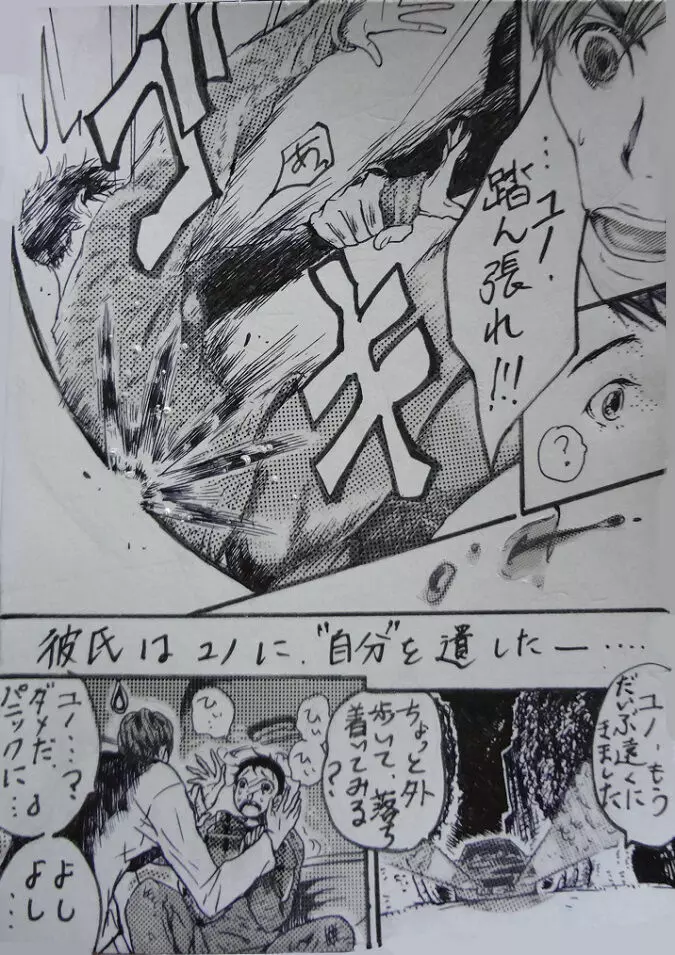 …ユノ.
踏ん張れ!!!
ズ
キ
あっ
?
彼氏はユノに、"自分"を遺したー……
ユノ、もう
だいぶ遠くに
きました
ちょっと外
歩いて、落ち
着いてみる
?
ひぃ
ひぃ
ひぃ
ユノ…?
ダメだ、
パニックに…
よし
よし
…